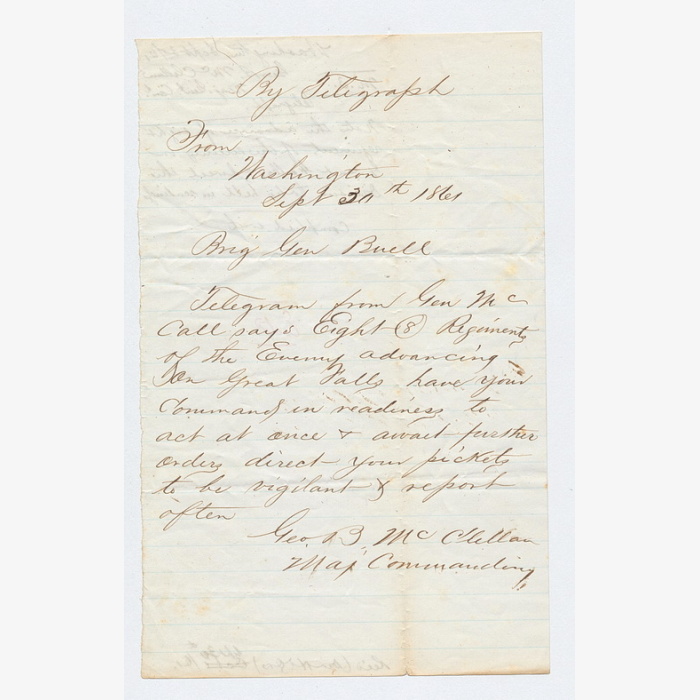 By Telegraph
From
Washington
Sept 30th 1861
Brig Gen Buell
Telegram from Gen Mc
Call says Eight (8) Regiments
of the Evenny advancing
On Great Falls have your
Command in readiness to
act at once & await further
orders direct your pickets
to be vigilant & report
often
Geo B. McClellan
Maj Commanding